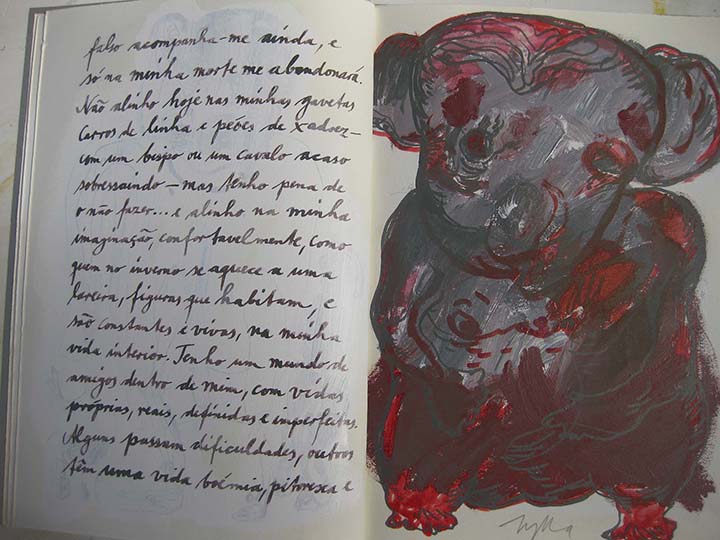 falso acompanha-me ainda, e
só na minha morte me abandonará.
Não alinho hoje nas minhas gavetas
carros de linha e peões de xadrez —
com um bispo ou um cavalo acaso
sobressaindo — mas tenho pena de
o não fazer... e alinho na minha
imaginação, confortavelmente, como
quem no inverno se aquece a uma
lareira, figuras que habitam, e
são constantes e vivas, na minha
vida interior. Tenho um mundo de
amigos dentro de mim, com vidas
próprias, reais, definidas e imperfeitas.
Alguns passam dificuldades, outros
têm uma vida boémia, pitoresca e